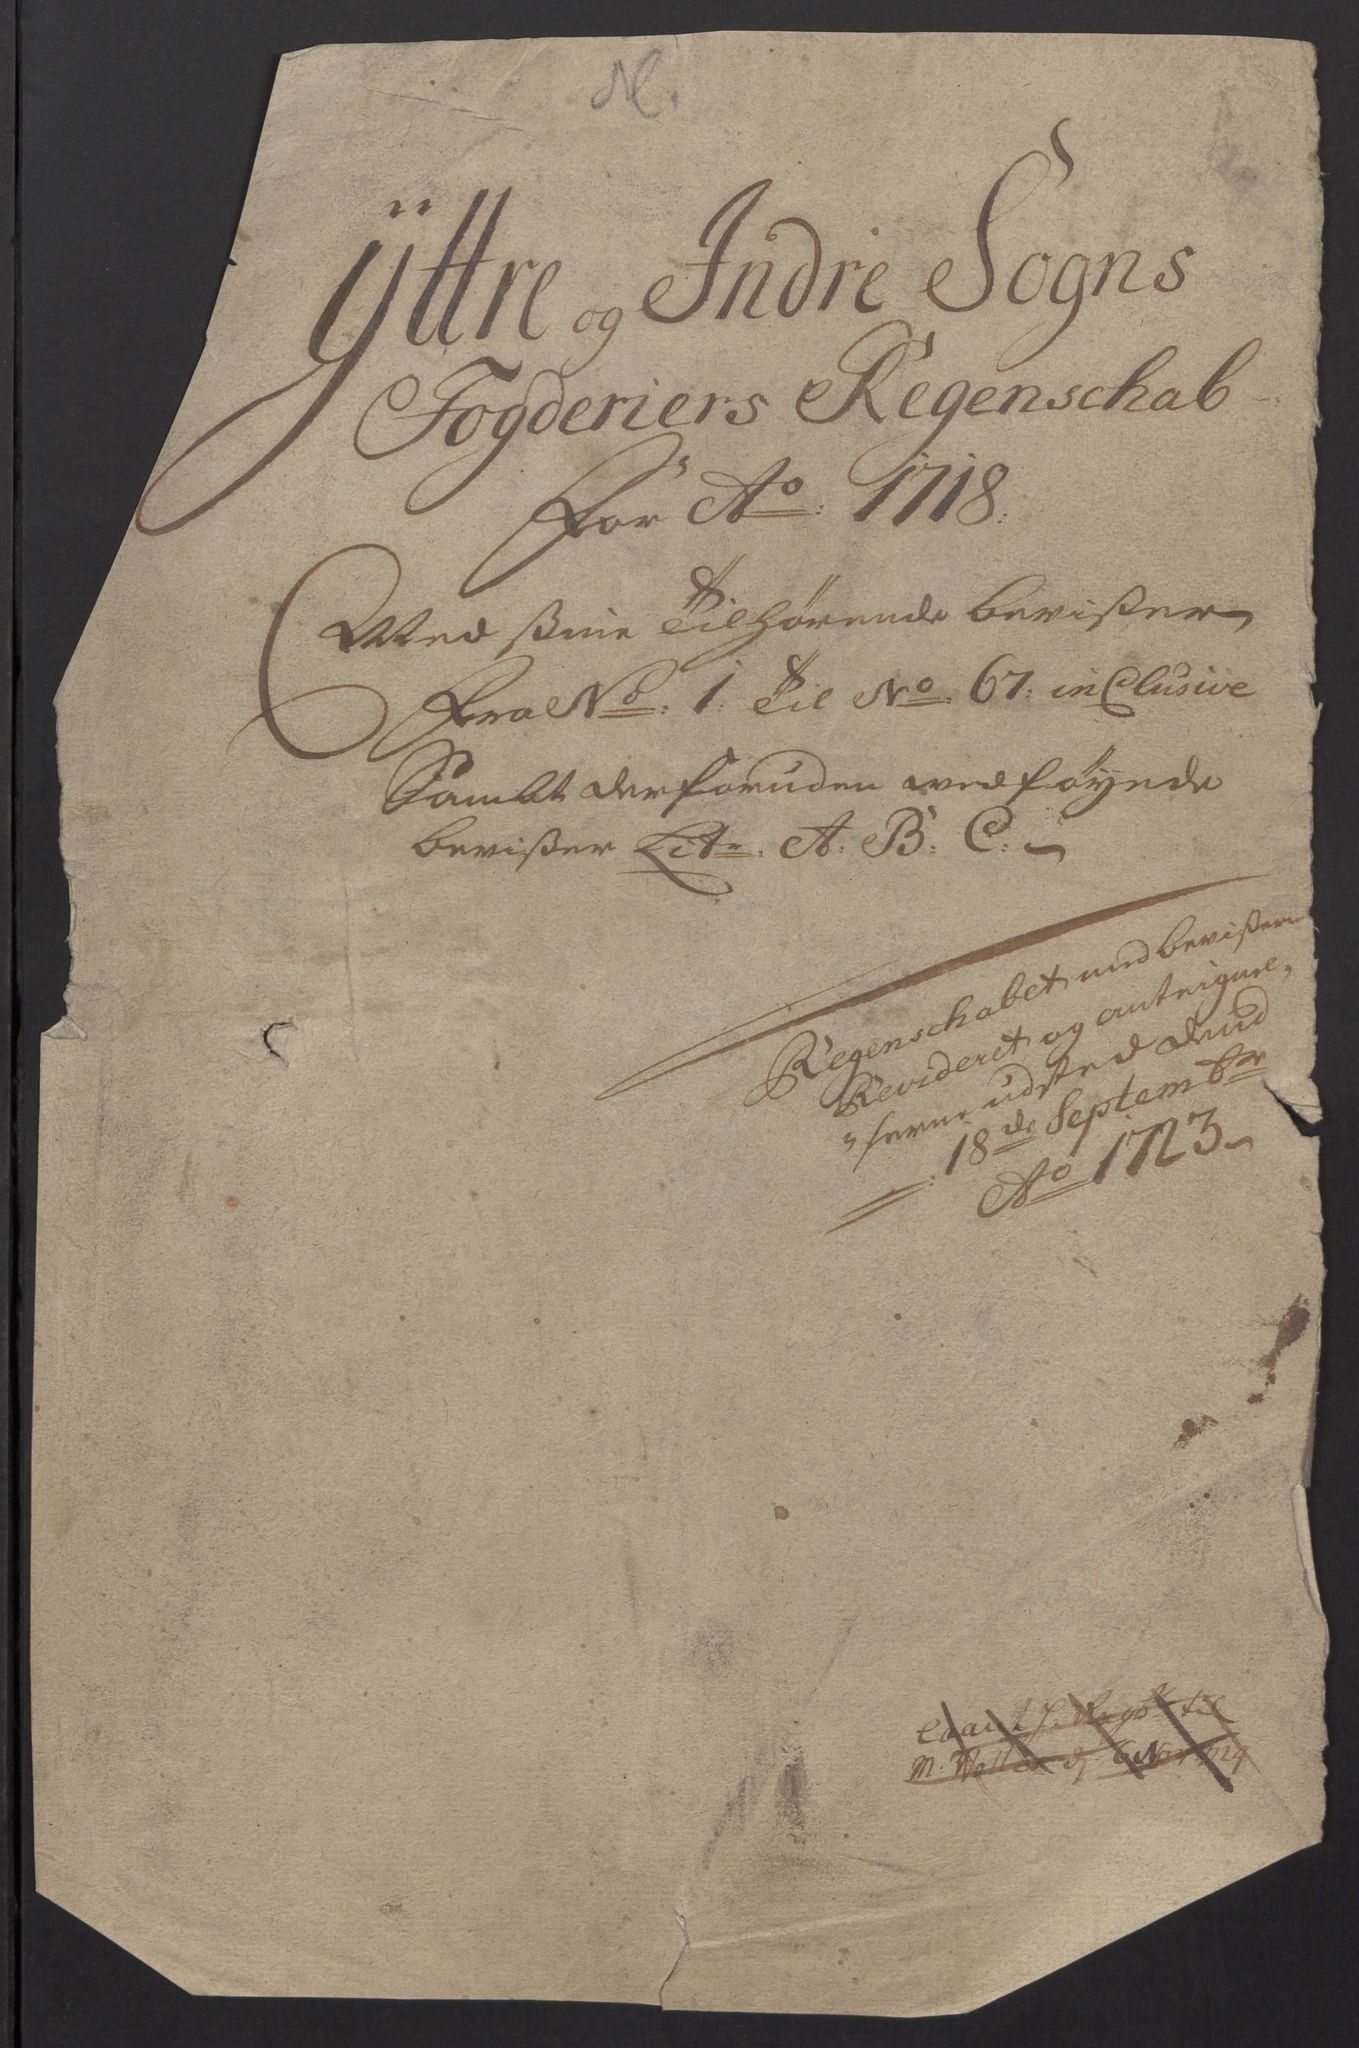 Ÿttre og Indre Sogns
Fogderiers Regenschab
for Ao. 1718.
Med ßine Tilhörende bevißer
fra No. 1. Til No. 67. inClusive
Sambt derforuden vedföÿende
bevißer Litr. A. B. C.
Regenschabet med bevißerne
Revideret og anteignel,
serne udsted dend
18de Septembr
Ao 1723
til
M.